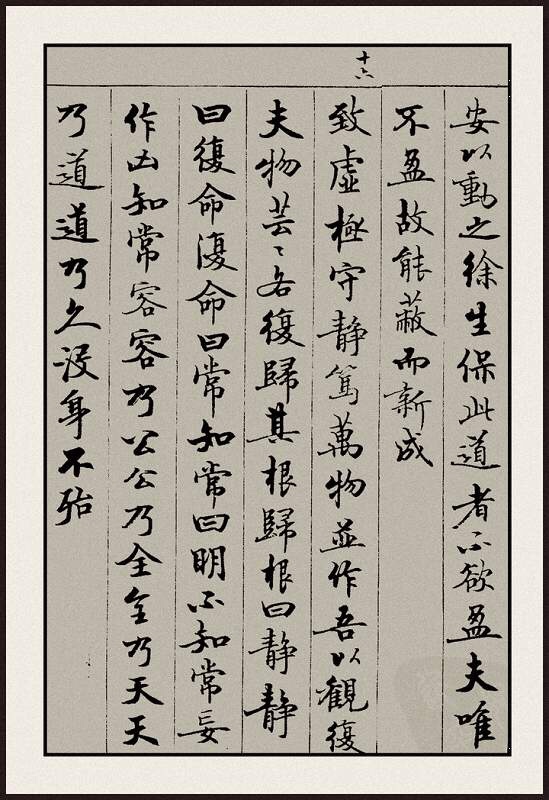 十六
安以動之徐生保此道者不欲盈夫唯
不盈故能蔽而新成
致虛極守静篤萬物並作吾以觀復
夫物芸〻各復歸其根歸根曰静静
曰復命復命曰常知常曰明不知常妄
作凶知常容容乃公公乃全全乃天天
乃道道乃久没身不殆